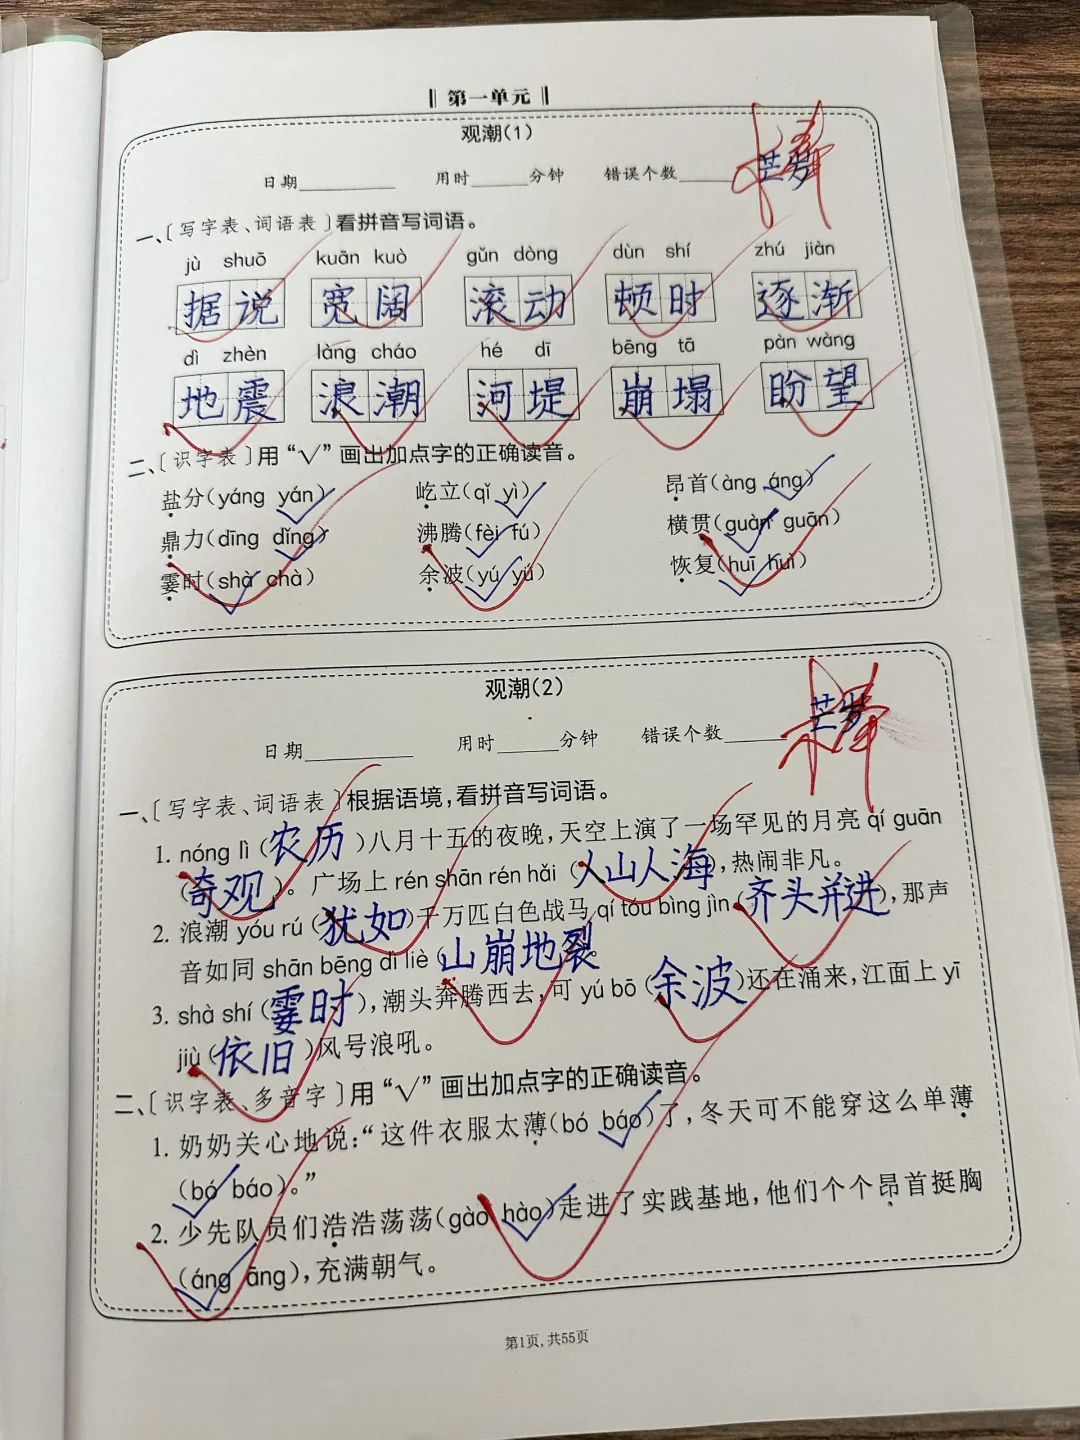 第一单元
观潮(1)
日期 用时 分钟 错误个数 芒岁
一、〔写字表、词语表〕看拼音写词语。
jù shuō kuān kuò gǔn dòng dùn shí zhú jiàn
据说 宽阔 滚动 顿时 逐渐
dì zhèn làng cháo hé dī bēng tā pàn wàng
地震 浪潮 河堤 崩塌 盼望
二、〔识字表〕用“√”画出加点字的正确读音。
盐分(yáng yán) 屹立(qǐ yì) 昂首(àng áng)
鼎力(dīng dǐng) 沸腾(fèi fú) 横贯(guàn guān)
霎时(shà chà) 余波(yú yú) 恢复(huī huì)
观潮(2)
日期 用时 分钟 错误个数 芒岁
一、〔写字表、词语表〕根据语境,看拼音写词语。
1. nóng lì (农历)八月十五的夜晚,天空上演了一场罕见的月亮 qí guān
(奇观)。广场上 rén shān rén hǎi (人山人海),热闹非凡。
2. 浪潮 yóu rú (犹如)千万匹白色战马 qí tóu bìng jìn (齐头并进),那声
音如同 shān bēng dì liè (山崩地裂)。
3. shà shí (霎时),潮头奔腾西去,可 yú bō (余波)还在涌来,江面上 yī
jiù (依旧)风号浪吼。
二、〔识字表、多音字〕用“√”画出加点字的正确读音。
1. 奶奶关心地说:“这件衣服太薄(bó báo)了,冬天可不能穿这么单薄
(bó báo)。”
2. 少先队员们浩浩荡荡(gào hào)走进了实践基地,他们个个昂首挺胸
(áng āng),充满朝气。
第1页,共55页